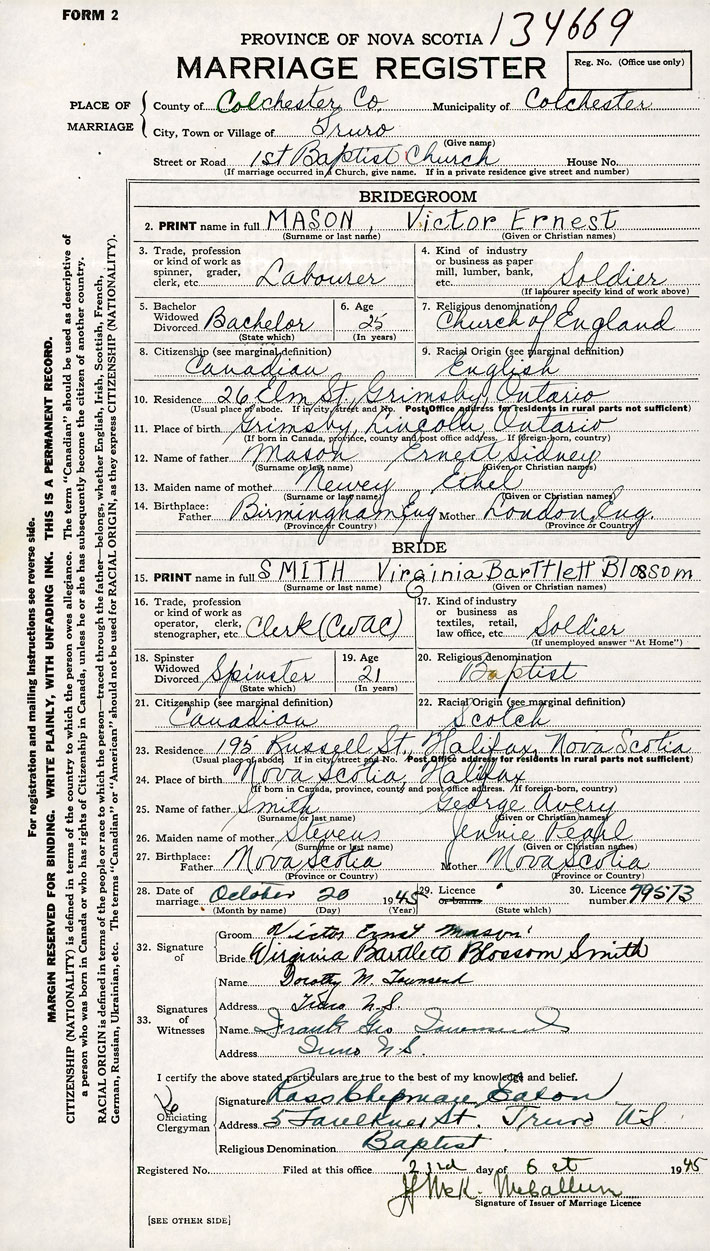 FORM 2
134669
PROVINCE OF NOVA SCOTIA
MARRIAGE REGISTER
Reg. No. (Office use only)
PLACE OF MARRIAGE
County of Colchester Co Municipality of Colchester
City, Town or Village of Truro
(Give name)
Street or Road 1st Baptist Church House No.
(If marriage occurred in a Church, give name. If in a private residence give street and number)
BRIDEGROOM
2. PRINT name in full MASON, Victor Ernest
(Surname or last name) (Given or Christian names)
3. Trade, profession or kind of work as spinner, grader, clerk, etc. Labourer
4. Kind of industry or business as paper mill, lumber, bank, etc. Soldier
(If labourer specify kind of work above)
5. Bachelor Widowed Divorced Bachelor
(State which)
6. Age 25
(In years)
7. Religious denomination Church of England
8. Citizenship (see marginal definition) Canadian
9. Racial Origin (see marginal definition) English
10. Residence 26 Elm St, Grimsby, Ontario
(Usual place of abode. If in city, street and No. Post Office address for residents in rural parts not sufficient)
11. Place of birth Grimsby, Lincoln, Ontario
(If born in Canada, province, county and post office address. If foreign-born, country)
12. Name of father Mason Ernest Sidney
(Surname or last name) (Given or Christian names)
13. Maiden name of mother Newey Ethel
(Surname or last name) (Given or Christian names)
14. Birthplace: Father Birmingham Eng Mother London, Eng.
(Province or Country) (Province or Country)
BRIDE
15. PRINT name in full SMITH Virginia Barttlett Blossom
(Surname or last name) (Given or Christian names)
16. Trade, profession or kind of work as operator, clerk, stenographer, etc. Clerk (CWAC)
17. Kind of industry or business as textiles, retail, law office, etc. Soldier
(If unemployed answer "At Home")
18. Spinster Widowed Divorced Spinster
(State which)
19. Age 21
(In years)
20. Religious denomination Baptist
21. Citizenship (see marginal definition) Canadian
22. Racial Origin (see marginal definition) Scotch
23. Residence 195 Russell St, Halifax, Nova Scotia
(Usual place of abode. If in city, street and No. Post Office address for residents in rural parts not sufficient)
24. Place of birth Nova Scotia, Halifax
(If born in Canada, province, county and post office address. If foreign-born, country)
25. Name of father Smith George Avery
(Surname or last name) (Given or Christian names)
26. Maiden name of mother Stevens Jennie Pearl
(Surname or last name) (Given or Christian names)
27. Birthplace: Father Nova Scotia Mother Nova Scotia
(Province or Country) (Province or Country)
28. Date of marriage October 20 1945
(Month by name) (Day) (Year)
29. Licence or banns
(State which)
30. Licence number 79573
32. Signature of
Groom Victor Ernst Mason
Bride Virginia Bartlett Blossom Smith
33. Signatures of Witnesses
Name Dorothy M. Townsend
Address Truro N.S.
Name Frank Geo Townsend
Address Truro N.S.
I certify the above stated particulars are true to the best of my knowledge and belief.
Officiating Clergyman
Signature Ross Chipman Eaton
Address 5 Faulkner St. Truro NS
Religious Denomination Baptist
Registered No. Filed at this office 23rd day of Oct 1945
Signature of Issuer of Marriage Licence
[SEE OTHER SIDE]
For registration and mailing instructions see reverse side.
MARGIN RESERVED FOR BINDING. WRITE PLAINLY, WITH UNFADING INK. THIS IS A PERMANENT RECORD.
CITIZENSHIP (NATIONALITY) is defined in terms of the country to which the person owes allegiance. The term "Canadian" should be used as descriptive of
a person who was born in Canada or who has rights of Citizenship in Canada, unless he or she has subsequently become the citizen of another country.
RACIAL ORIGIN is defined in terms of the people or race to which the person—traced through the father—belongs, whether English, Irish, Scottish, French,
German, Russian, Ukrainian, etc. The terms "Canadian" or "American" should not be used for RACIAL ORIGIN, as they express CITIZENSHIP (NATIONALITY).